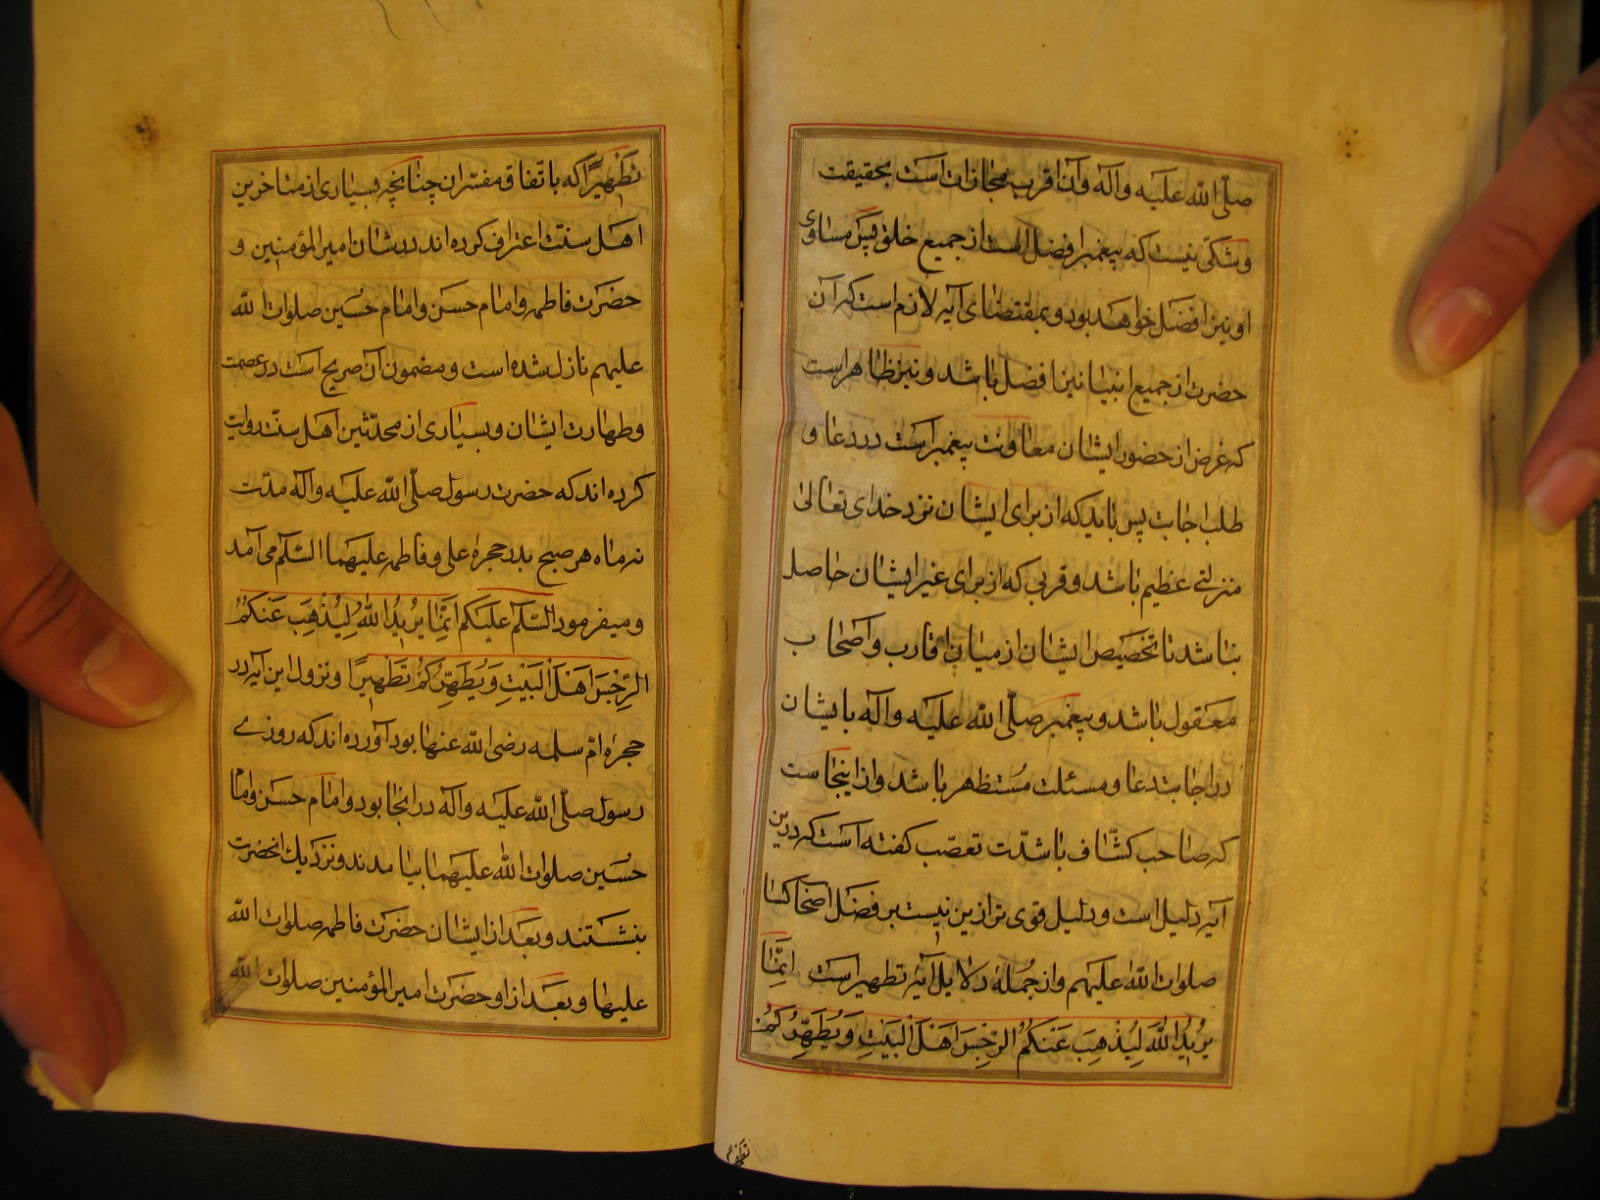 صلّی الله علیه وآله وآن اقرب مجازات است بحقیقت
وشکّی نیست که پیغمبر افضل است از جمیع خلق پس مساوی
او نیز افضل خواهد بود و بمقتضای آیه لازم است که آن
حضرت از جمیع انبیا نیز افضل باشد و نیز ظاهر است
که غرض از حضور ایشان معاونت پیغمبر است در دعا و
طلب اجابت پس باید که از برای ایشان نزد خدای تعالی
منزلتی عظیم باشد و قربی که از برای غیر ایشان حاصل
نباشد تا تخصیص ایشان از میان اقارب و اصحاب
معقول باشد و پیغمبر صلّی الله علیه وآله بایشان
در اجابت دعا و مسئلت مستظهر باشد و از اینجاست
که صاحب کشّاف با شدّت تعصّب کفته است که درین
آیه دلیل است و دلیل قوی تر ازین نیست بر فضل اصحاب کسا
صلوات الله علیهم و از جمله دلایل آیۀ تطهیر است اِنَّمَا
یُرِیدُ اللهُ لِیُذْهِبَ عَنْکُمُ الرِّجْسَ اَهْلَ الْبَیْتِ وَیُطَهِّرُکُمْ
تطهیرا
تَطْهِیرًا که باتّفاق مفسّران چنانچه بسیاری از متاخرین
اهل سنّت اعتراف کرده اند در شان امیرالمؤمنین و
حضرت فاطمه و امام حسن و امام حسین صلوات الله
علیهم نازل شده است و مضمون آن صریح است در عصمت
و طهارت ایشان و بسیاری از محدّثین اهل سنّت روایت
کرده اند که حضرت رسول صلّی الله علیه وآله مدّت
نه ماه هر صبح بدر حجرۀ علی و فاطمه علیهما السّلام می آمد
و میفرمود السّلام علیکم اِنَّمَا یُرِیدُ اللهُ لِیُذْهِبَ عَنْکُمُ
الرِّجْسَ اَهْلَ الْبَیْتِ وَیُطَهِّرُکُمْ تَطْهِیرًا و نزول این آیه در
حجرۀ امّ سلمه رضی الله عنها بود آورده اند که روزی
رسول صلّی الله علیه وآله در انجا بود و امام حسن و امام
حسین صلوات الله علیهما بیامدند و نزدیك انحضرت
بنشستند و بعد از ایشان حضرت فاطمه صلوات الله
علیها و بعد از او حضرت امیرالمؤمنین صلوات الله